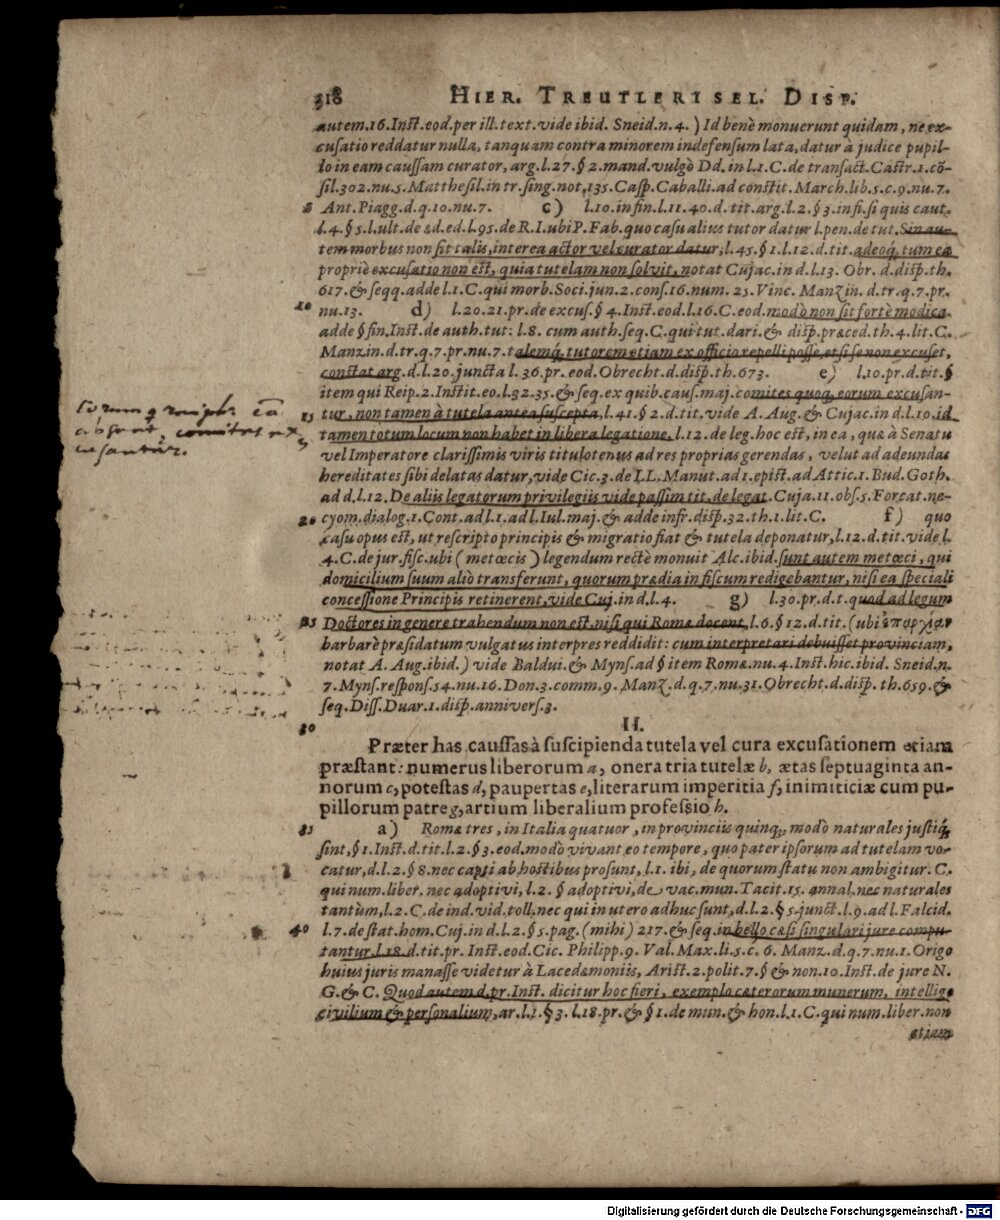 318 HIER. TREUTLERI SEL. DISP.
autem.16.Inst.eod.per ill.text.vide ibid. Sneid.n.4.) Id benè monuerunt quidam, ne ex-
cusatio reddatur nulla, tanquam contra minorem indefensum lata, datur à judice pupil-
lo in eam caussam curator, arg.l.27.§2.mand.vulgò Dd. in l.1.C.de transact. Castr.1.cõ-
sil.302.nu.5. Matthesil.in tr.sing.not.135.Casp.Caballi.ad constit. March.lib.5.c.9.nu.7.
5 Ant.Piagg.d.q.10.nu.7. c) l.10.in fin.l.11.40.d.tit.arg.l.2.§3.infi.si quis caut.
l.4.§5.l.ult.de æd.ed.l.95.de R.I.ubi P. Fab.quo casu alius tutor datur l.pen.de tut. Sin au-
tem morbus non sit talis, interea actor vel curator datur, l.45.§1.l.12.d.tit. adeoq; tum ea
propriè excusatio non est, quia tutelam non solvit, notat Cujac.in d.l.13. Obr. d.disp.th.
617.& seqq.adde l.1.C.qui morb.Soci.jun.2.cons.16.num. 25. Vinc. Manzin. d.tr.q.7.pr.
10 nu.13. d) l.20.21.pr.de excus.§4.Inst.eod.l.16.C.eod.modò non sit fortè modica.
adde §fin.Inst.de auth.tut: l.8. cum auth.seq.C.qui tut.dari.& disp.præced.th.4.lit.C.
Manz.in.d.tr.q.7.pr.nu.7.talemq; tutorem etiam ex officio repelli posse, etsi se non excuset,
constat arg.d.l.20.juncta l.36.pr.eod.Obrecht.d.disp.th.673. e) l.10.pr.d.tit.§
item qui Reip.2.Instit.eo.l.32.35.& seq.ex quib.caus.maj.comites quoq; eorum excusan-
15 tur, non tamen à tutela antea suscepta, l.41.§2.d.tit.vide A.Aug.& Cujac.in d.l.10.id
tamen totum locum non habet in libera legatione, l.12.de leg.hoc est, in ea, quæ à Senatu
vel Imperatore clarissimis viris titulotenus ad res proprias gerendas, velut ad adeundas
hereditates sibi delatas datur, vide Cic.3.de LL. Manut.ad 1.epist.ad Attic.1.Bud.Goth.
ad d.l.12. De aliis legatorum privilegiis vide passim tit.de legat. Cuja.11.obs.5.Forcat.ne-
20 cyom.dialog.1.Cont.ad l.1.ad l.Iul.maj.& adde infr.disp.32.th.1.lit.C. f) quo
casu opus est, ut rescripto principis & migratio fiat & tutela deponatur, l.12.d.tit.vide l.
4.C.de jur.fisc.ubi (metœcis) legendum rectè monuit Alc.ibid.sunt autem metœci, qui
domicilium suum aliò transferunt, quorum prædia in fiscum redigebantur, nisi ea speciali
concessione Principis retinerent, vide Cuj.in d.l.4. g) l.30.pr.d.t.quod ad legum
25 Doctores in genere trahendum non est, nisi qui Romæ docent, l.6.§12.d.tit.(ubi ἐπαρχίαν
barbarè præsidatum vulgatus interpres reddidit: cum interpretari debuisset provinciam,
notat A. Aug.ibid.) vide Baldui.& Myns.ad §item Romæ.nu.4.Inst.hic.ibid. Sneid.n.
7.Myns.respons.54.nu.16.Don.3.comm.9. Manz.d.q.7.nu.31.Obrecht.d.disp. th.659.&
seq.Diss.Duar.1.disp.annivers.3.
30 II.
Præter has caussas à suscipienda tutela vel cura excusationem etiam
præstant: numerus liberorum a, onera tria tutelæ b, ætas septuaginta an-
norum c, potestas d, paupertas e, literarum imperitia f, inimicitiæ cum pu-
pillorum patre g, artium liberalium professio h.
35 a) Romæ tres, in Italia quatuor, in provinciis quinq;, modò naturales justiq;
sint, §1.Inst.d.tit.l.2.§3.eod.modò vivant eo tempore, quo pater ipsorum ad tutelam vo-
catur, d.l.2.§8.nec capti ab hostibus prosunt, l.1. ibi, de quorum statu non ambigitur. C.
qui num.liber. nec adoptivi, l.2. § adoptivi, de vac.mun.Tacit.15. annal.nec naturales
tantùm, l.2.C.de ind.vid.toll.nec qui in utero adhuc sunt, d.l.2.§5.junct.l.9.ad l.Falcid.
40 l.7.de stat.hom.Cuj.in d.l.2.§5.pag.(mihi) 217.& seq.in bello cæsi singulari jure compu-
tantur.l.18.d.tit.pr. Inst.eod.Cic. Philipp.9. Val. Max.li.5.c.6. Manz.d.q.7.nu.1. Origo
hujus juris manasse videtur à Lacedæmoniis, Arist.2.polit.7.§ & non.10.Inst.de jure N.
G.& C. Quod autem d.pr.Inst. dicitur hoc fieri, exemplo cæterorum munerum, intellige
civilium & personalium, ar.l.1.§3.l.18.pr.&§1.de mun.& hon.l.1.C.qui num.liber.non
etiam
comites ex-
cusantur.
Digitalisierung gefördert durch die Deutsche Forschungsgemeinschaft - DFG